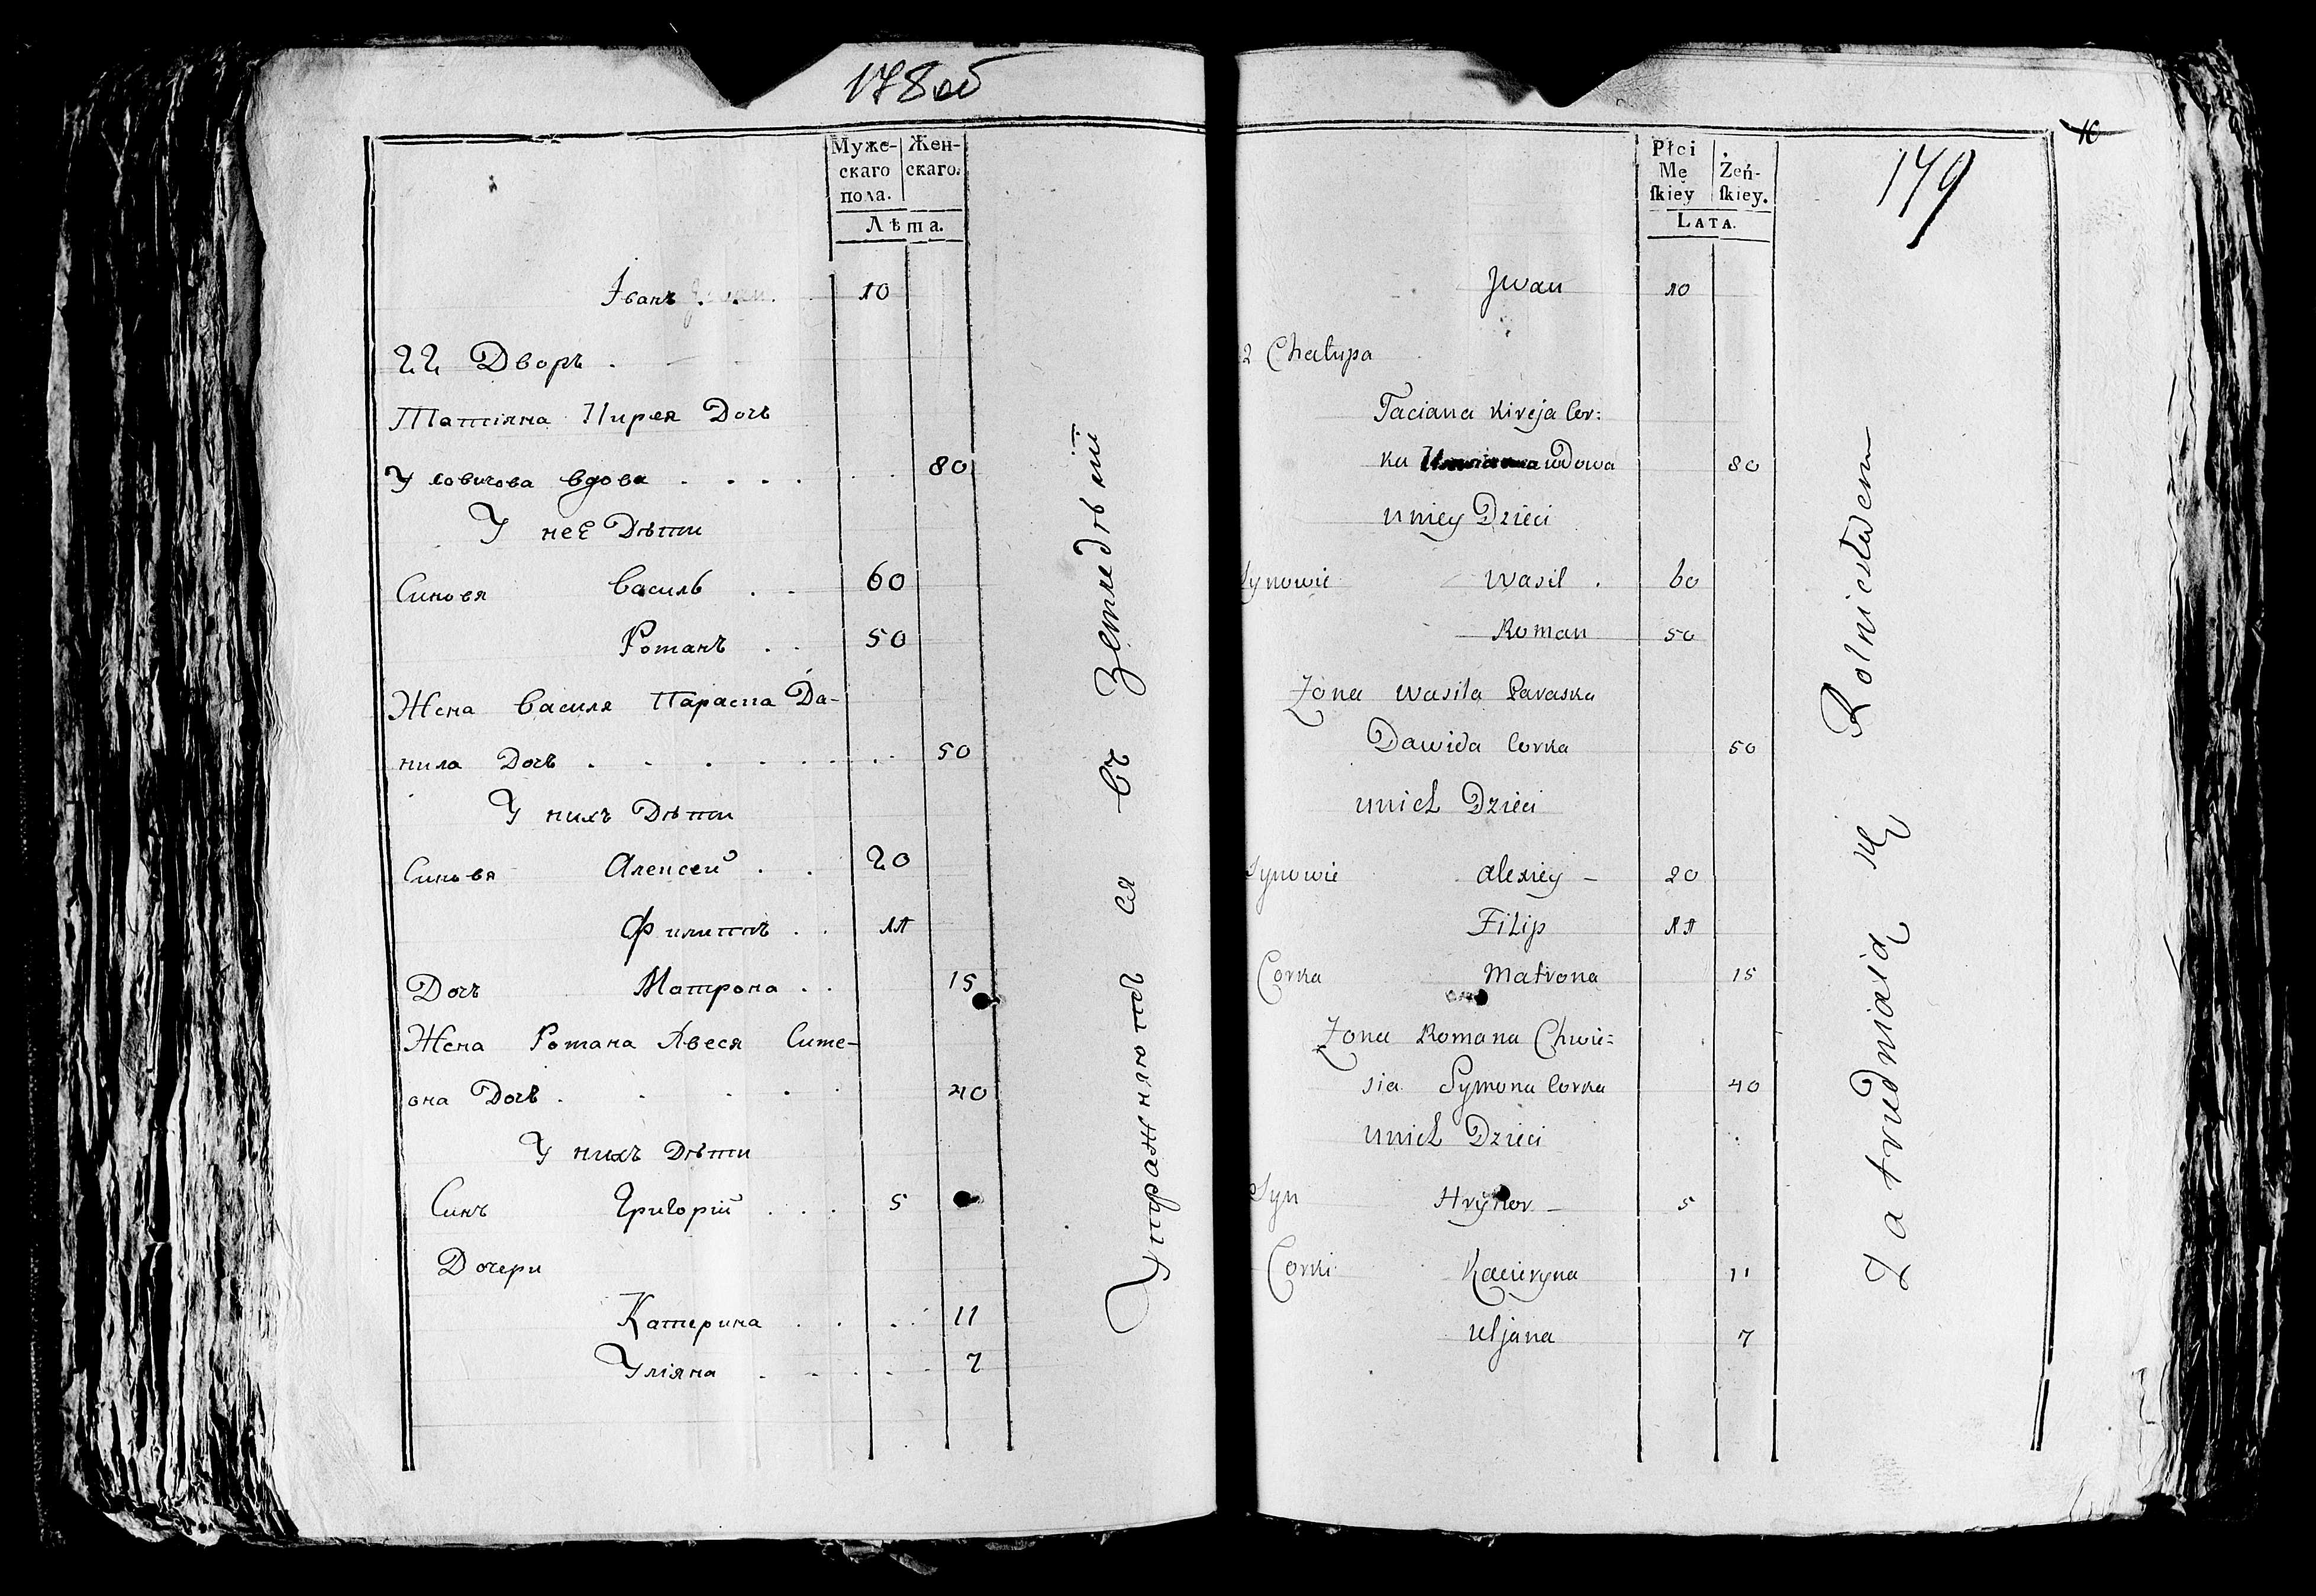 178 об
Муже-
скаго
пола.
Жен-
скаго.
Лѣта.
Іванъ . . . 10
22 Дворъ .
Татіяна Кирея Дочъ
вдова . . . . . . 80
У неЕ Дѣти
Синовя Василь . . 60
Романъ . . 50
Жена Василя Параска Да-
нила Дочъ . . . . . . . 50
У нихъ Дѣти
Синовя Алексей . . 20
Филиппъ . .
Дочъ Матрона . . 15
Жена Романа Авеся Симе-
она Дочъ . . . . . 40
У нихъ Дѣти
Синъ Григорий . . . 5
Дочери
Катерина . . . . 11
Уліяна . . . . . 7
Упражняются въ Земледѣліи
10
149
Płci
Mę
ſkiey
Żeń-
ſkiey.
LATA.
Jwan 10
2 Chałupa
Taciana Kireja Cor:
ka wdowa 80
u niey Dzieci
Synowie Wasil . 60
Roman 50
Zona Wasila Paraska
Dawida Corka 50
u nich Dzieci
Synowie Alexiey – 20
Filip
Corka Matrona 15
Zona Romana Chwie=
sia Symona Corka 40
u nich Dzieci
Syn Hryhor – 5
Corki Kacieryna 11
Uljana 7
Zatrudniaią się Rolnictwem